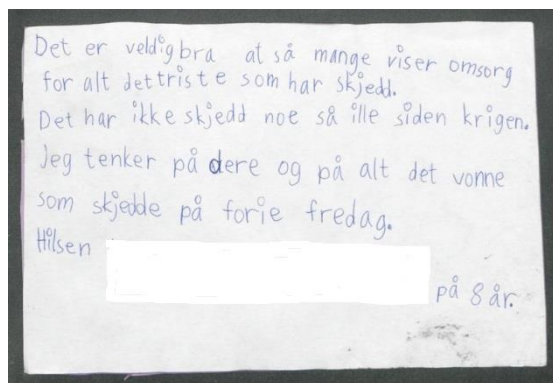 Det er veldig bra at så mange viser omsorg
for alt det triste som har skjedd.
Det har ikke skjedd noe så ille siden krigen.
Jeg tenker på dere og på alt det vonne
som skjedde på forie fredag.
Hilsen
på 8 år.